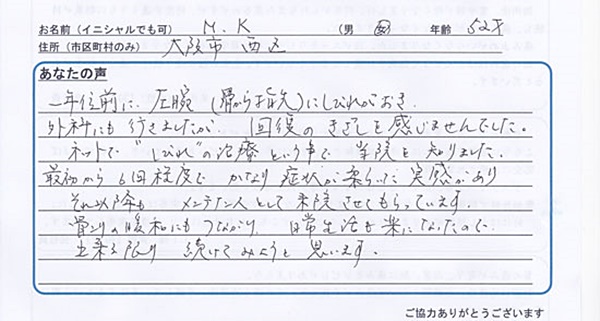 お名前(イニシャルでも可) M.K (男 女) 年齢 52才
住所(市区町村のみ) 大阪市 西区
あなたの声
一年位前に、左腕(骨から指先)にしびれがおき、
外科にも行きましたが、回復のきざしを感じませんでした。
ネットで"しびれ"の治療という事で当院を知りました。
最初から6回程度でかなり症状が楽らいだ実感があり
それ以降も メンテナンスとして来院させてもらっています。
骨コリの緩和にもつながり、日常生活も楽になったので
出来る限り 続けてみようと思います。
ご協力ありがとうございます